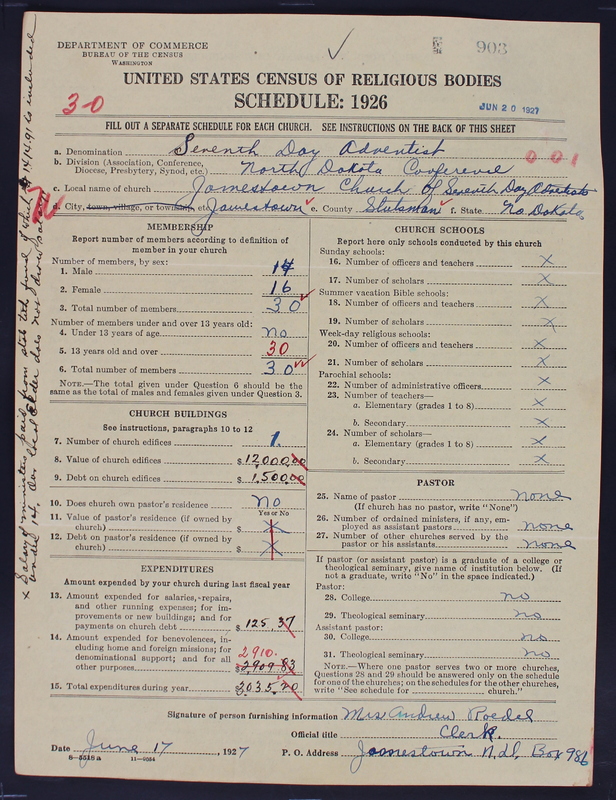 DEPARTMENT OF COMMERCE
BUREAU OF THE CENSUS
WASHINGTON
903
UNITED STATES CENSUS OF RELIGIOUS BODIES
SCHEDULE: 1926
30
JUN 20 1927
FILL OUT A SEPARATE SCHEDULE FOR EACH CHURCH. SEE INSTRUCTIONS ON THE BACK OF THIS SHEET
a. Denomination Seventh Day Adventist
b. Division (Association, Conference, Diocese, Presbytery, Synod, etc.) North Dakota Conference
001
c. Local name of church Jamestown Church of Seventh Day Adventists
d. City, town, village, or township, etc. Jamestown e. County Stutsman f. State No. Dakota
MEMBERSHIP
Report number of members according to definition of member in your church
Number of members, by sex:
1. Male 14
2. Female 16
3. Total number of members 30
Number of members under and over 13 years old:
4. Under 13 years of age no
5. 13 years old and over 30
6. Total number of members 30
NOTE.—The total given under Question 6 should be the same as the total of males and females given under Question 3.
CHURCH BUILDINGS
See instructions, paragraphs 10 to 12
7. Number of church edifices 1.
8. Value of church edifices $12,000.00
9. Debt on church edifices $1,500.00
10. Does church own pastor's residence No
Yes or No
11. Value of pastor's residence (if owned by church) $ X
12. Debt on pastor's residence (if owned by church) $ X
EXPENDITURES
Amount expended by your church during last fiscal year
13. Amount expended for salaries, repairs, and other running expenses; for improvements or new buildings; and for payments on church debt $125.37
14. Amount expended for benevolences, including home and foreign missions; for denominational support; and for all other purposes 2910. $2909.83
15. Total expenditures during year $3035.20
CHURCH SCHOOLS
Report here only schools conducted by this church
Sunday schools:
16. Number of officers and teachers X
17. Number of scholars X
Summer vacation Bible schools:
18. Number of officers and teachers X
19. Number of scholars X
Week-day religious schools:
20. Number of officers and teachers X
21. Number of scholars X
Parochial schools:
22. Number of administrative officers X
23. Number of teachers—
a. Elementary (grades 1 to 8) X
b. Secondary X
24. Number of scholars—
a. Elementary (grades 1 to 8) X
b. Secondary X
PASTOR
25. Name of pastor none
(If church has no pastor, write "None")
26. Number of ordained ministers, if any, employed as assistant pastors none
27. Number of other churches served by the pastor or his assistants none
If pastor (or assistant pastor) is a graduate of a college or theological seminary, give name of institution below. (If not a graduate, write "No" in the space indicated.)
Pastor:
28. College no
29. Theological seminary no
Assistant pastor:
30. College no
31. Theological seminary no
NOTE.—Where one pastor serves two or more churches, Questions 28 and 29 should be answered only on the schedule for one of the churches; on the schedules for the other churches, write "See schedule for ________ church."
Signature of person furnishing information Mrs Andrew Roedel
Official title Clerk.
Date June 17, 1927 P. O. Address Jamestown N.d., Box 986
8—5518a 11—9054
x Salary of ministers paid from state